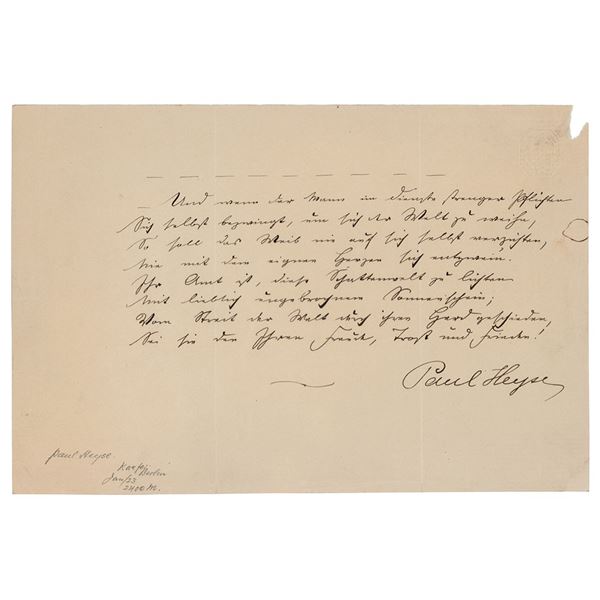 Und wenn der Mann im Dienste strenger Pflichten
Sich selbst bezwingt, um sich der Welt zu weihn,
So soll das Weib nie auf sich selbst verzichten,
Nie mit dem eignen Herzen sich entzwein.
Ihr Amt ist, diese Schattenwelt zu lichten
Mit lieblich ungebrochnem Sonnenschein;
Vom Streit der Welt durch ihren Herd geschieden,
Sei sie den Ihren Freude, Trost und Frieden!
Paul Heyse
Paul Heyse.
Berlin
Jan/23
2400 M.